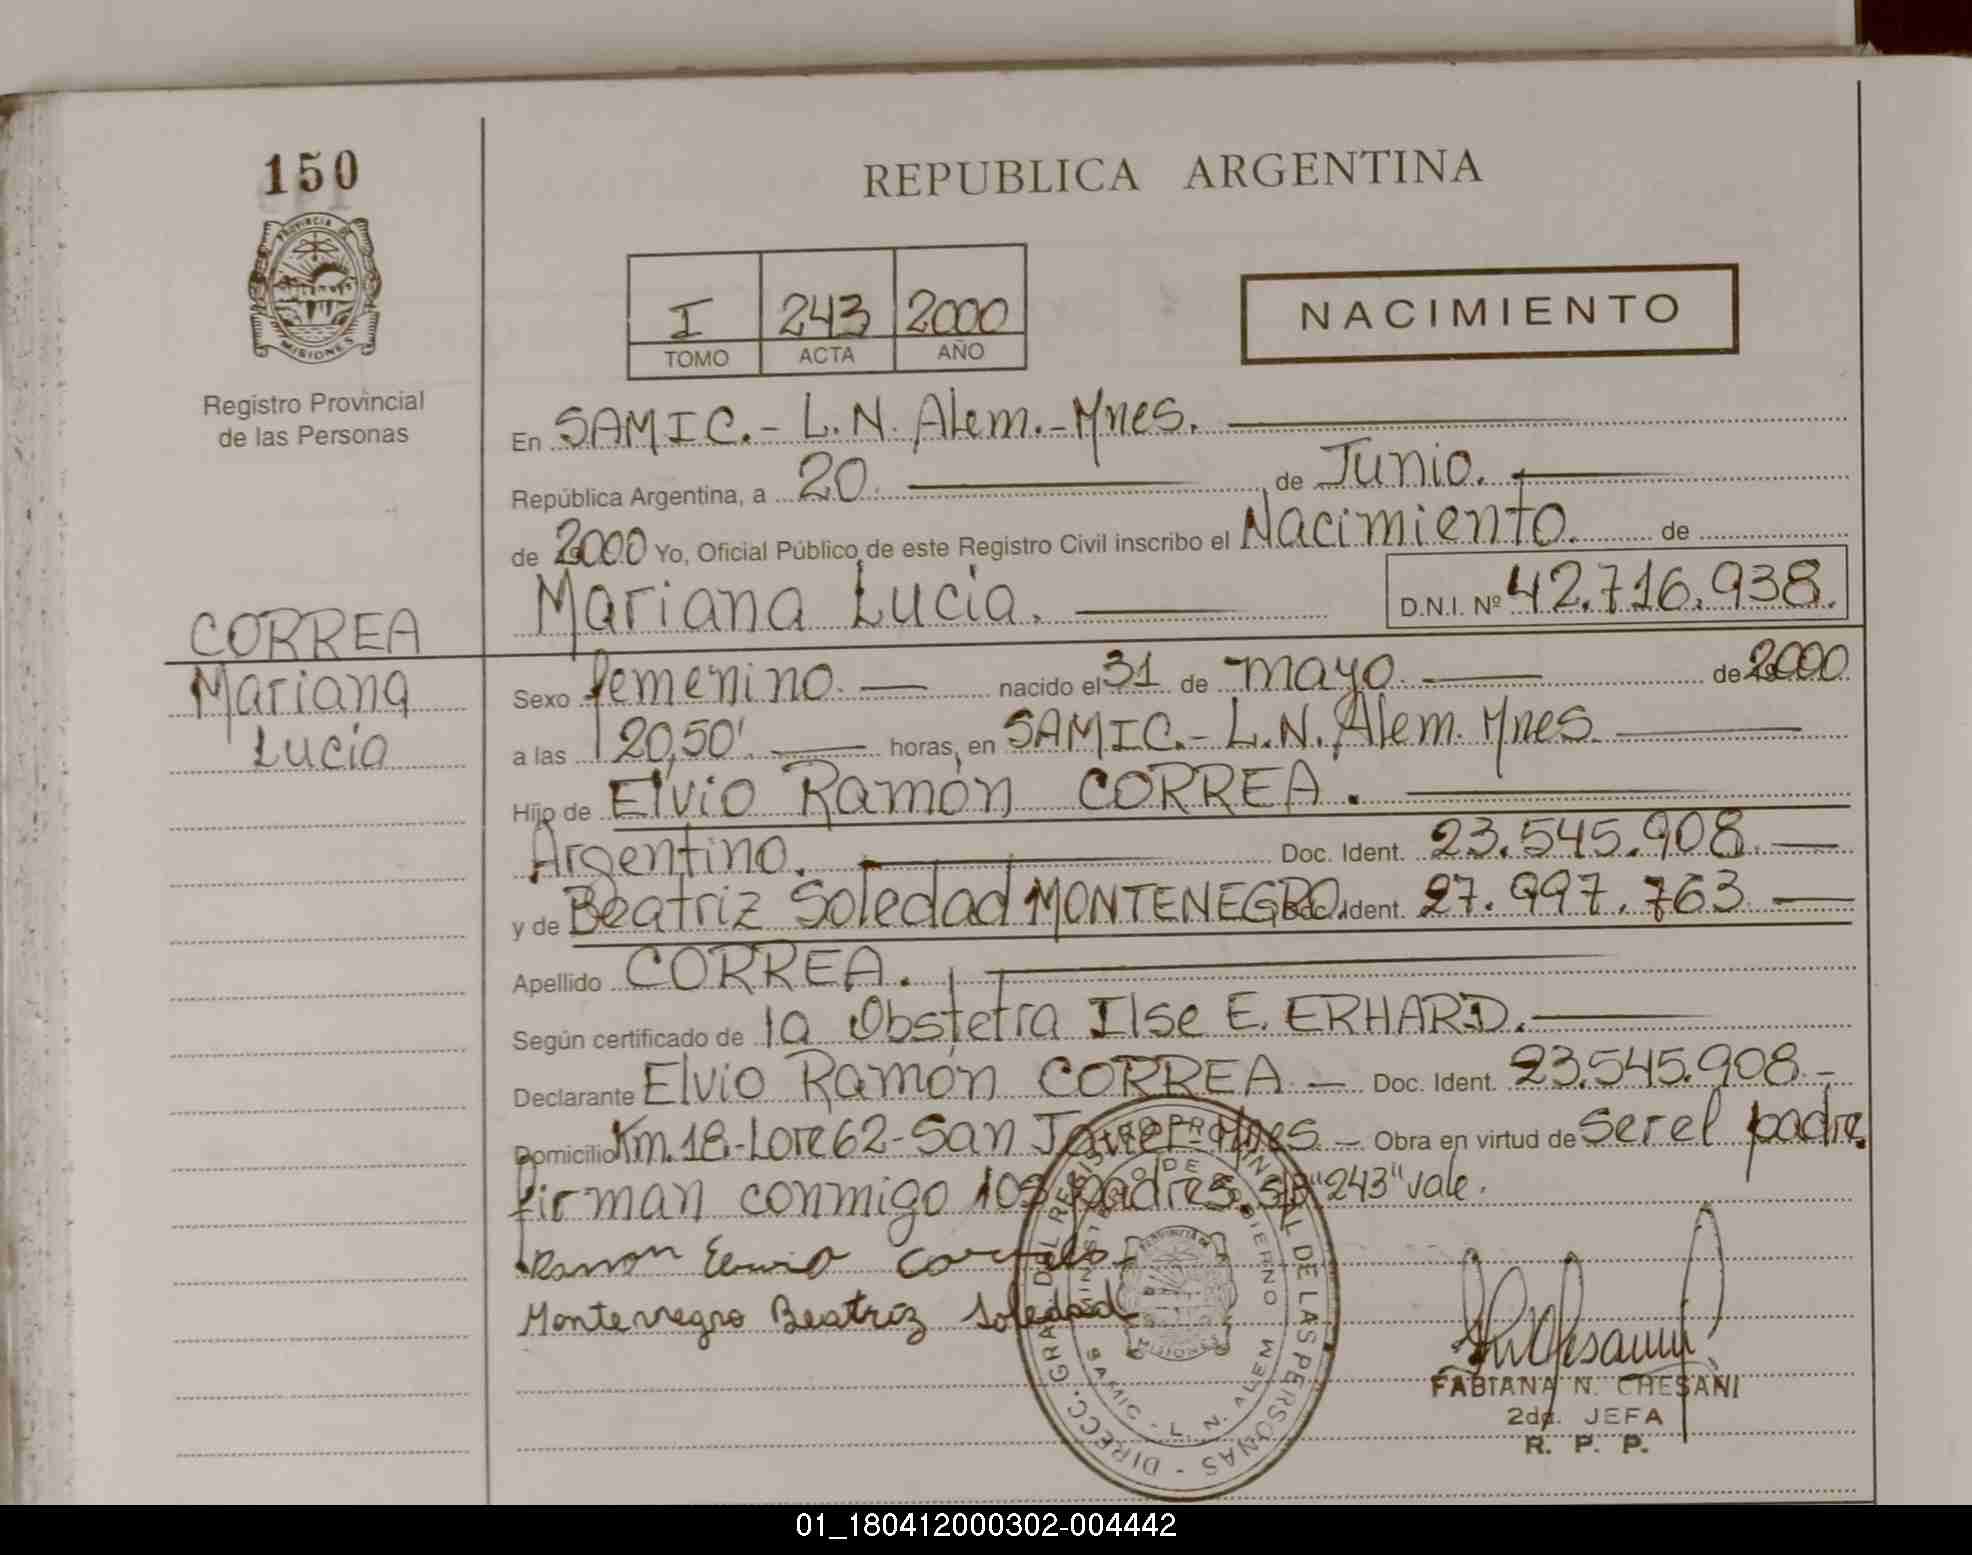 150
REPUBLICA ARGENTINA
PROVINCIA DE
MISIONES
Registro Provincial
de las Personas
I 243 2000
TOMO ACTA AÑO
NACIMIENTO
En SAMIC.- L.N. Alem.-Mnes.
República Argentina, a 20. de Junio.
de 2000 Yo, Oficial Público de este Registro Civil inscribo el Nacimiento. de
CORREA
Mariana
Lucía
Mariana Lucía. D.N.I. Nº 42.716.938.
Sexo femenino. nacido el 31 de mayo. de 2000
a las 20,50'. horas, en SAMIC.- L.N. Alem. Mnes.
Hijo de Elvio Ramón CORREA.
Argentino. Doc. Ident. 23.545.908
y de Beatriz Soledad MONTENEGRO. Doc. Ident. 27.997.763
Apellido CORREA.
Según certificado de la Obstetra Ilse E. ERHARD.
Declarante Elvio Ramón CORREA Doc. Ident. 23.545.908-
Domicilio Km.18-Lote 62-San Javier-Mnes. Obra en virtud de ser el padre
firman conmigo los padres. S/R "243" vale.
Ramon Elvio
Montenegro Beatriz Soledad
DIRECC. GRAL. DEL REGISTRO PROVINCIAL DE LAS PERSONAS
MINISTERIO DE GOBIERNO
SAMIC - L. N. ALEM
PROVINCIA DE
MISIONES
FABIANA N. CHESANI
2da. JEFA
R. P. P.
01_180412000302-004442